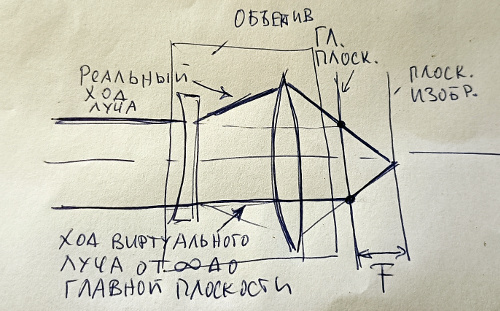 ОБЪЕКТИВ
ГЛ.
ПЛОСК.
ПЛОСК.
ИЗОБР.
РЕАЛЬНЫЙ
ХОД
ЛУЧА
ХОД ВИРТУАЛЬНОГО
ЛУЧА ОТ ∞ ДО
ГЛАВНОЙ ПЛОСКОСТИ
F